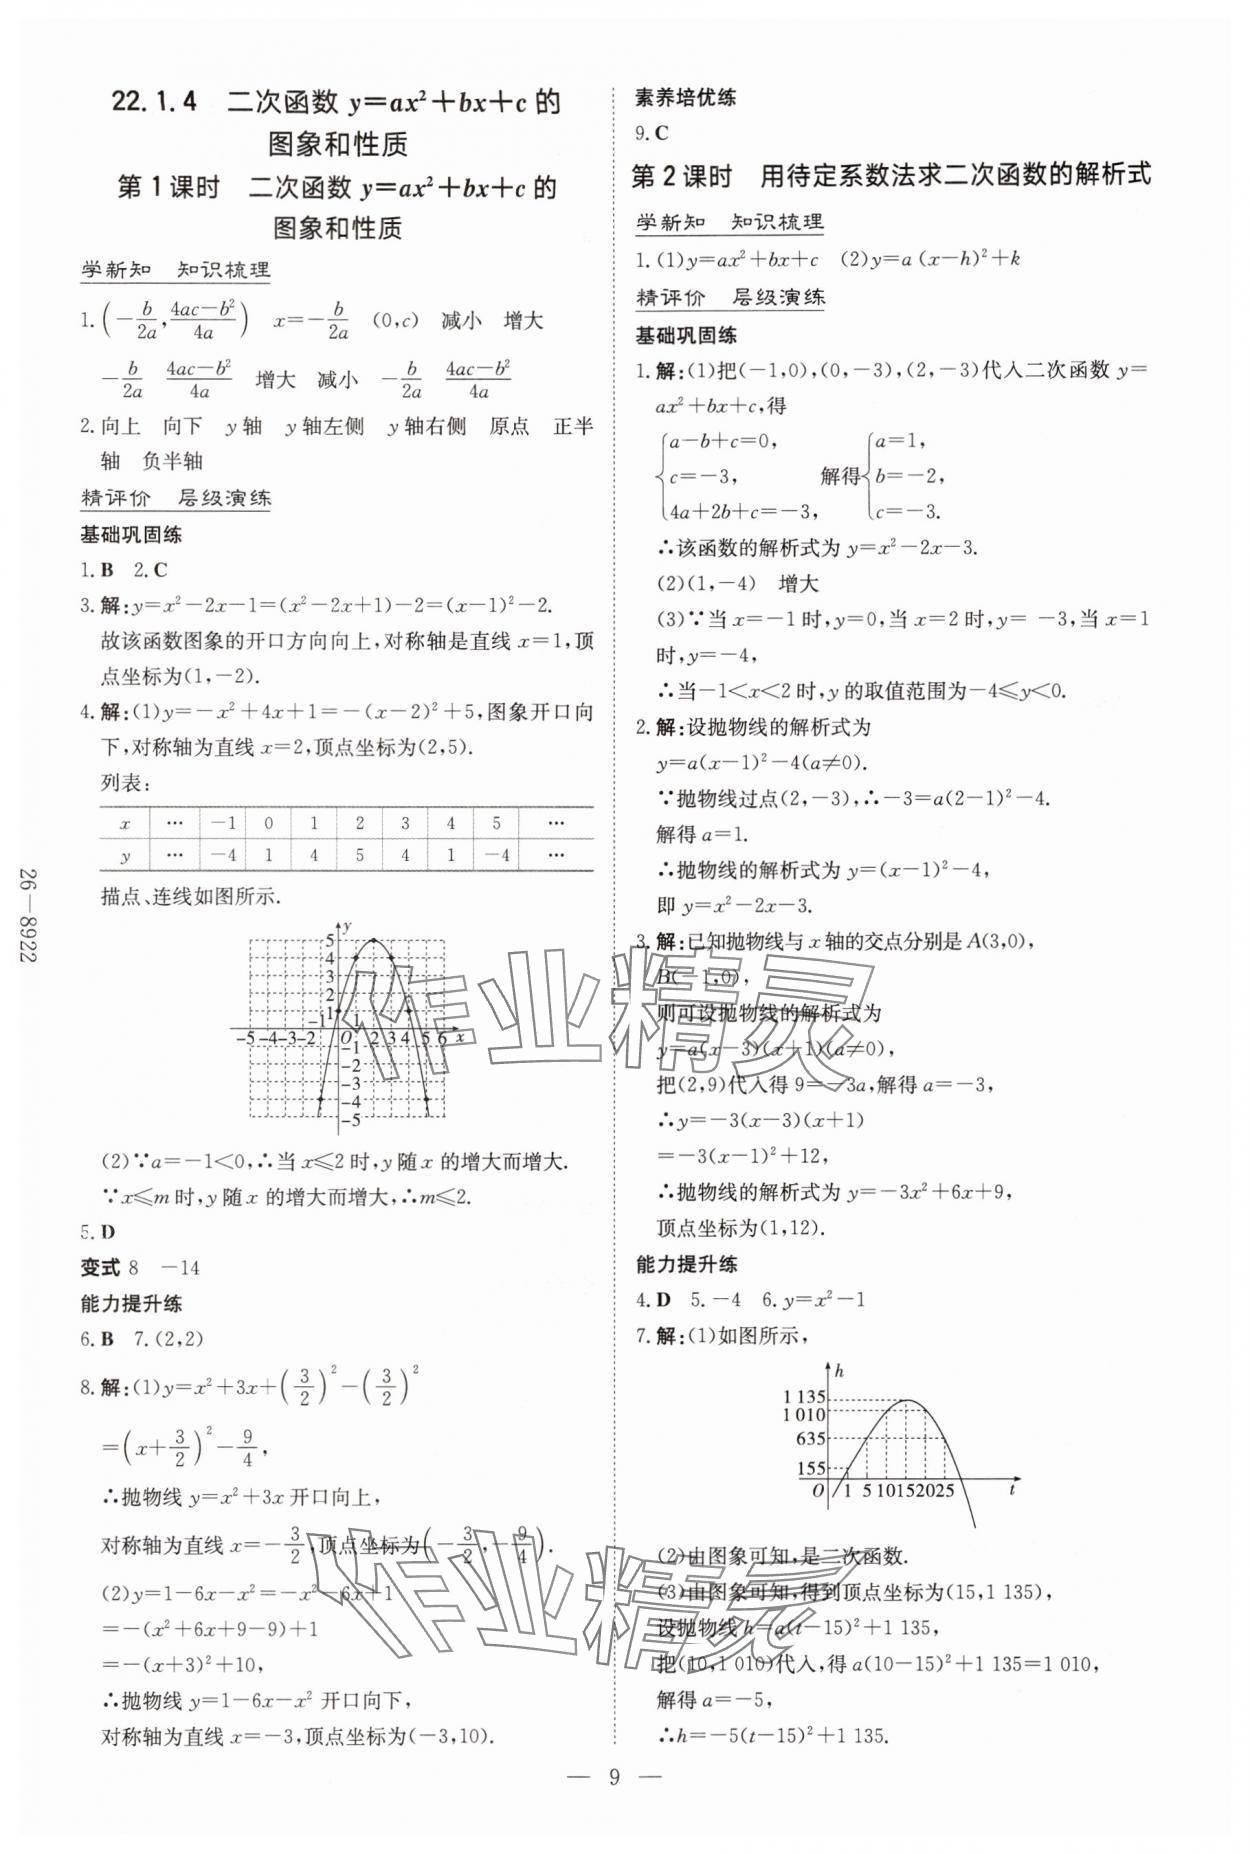 22.1.4 二次函数 y=ax²+bx+c 的
图象和性质
第1课时 二次函数 y=ax²+bx+c 的
图象和性质
学新知 知识梳理
1.(-b/2a, (4ac-b²)/4a) x=-b/2a (0,c) 减小 增大
-b/2a (4ac-b²)/4a 增大 减小 -b/2a (4ac-b²)/4a
2.向上 向下 y轴 y轴左侧 y轴右侧 原点 正半
轴 负半轴
精评价 层级演练
基础巩固练
1.B 2.C
3.解:y=x²-2x-1=(x²-2x+1)-2=(x-1)²-2.
故该函数图象的开口方向向上,对称轴是直线 x=1,顶
点坐标为(1,-2).
4.解:(1)y=-x²+4x+1=-(x-2)²+5,图象开口向
下,对称轴为直线 x=2,顶点坐标为(2,5).
列表:
x … -1 0 1 2 3 4 5 …
y … -4 1 4 5 4 1 -4 …
描点、连线如图所示.
y
5
4
3
2
1
-5 -4 -3 -2 -1 O 1 2 3 4 5 6 x
-1
-2
-3
-4
-5
(2)∵a=-1<0,∴当 x≤2 时,y 随 x 的增大而增大.
∵x≤m 时,y 随 x 的增大而增大,∴m≤2.
5.D
变式 8 -14
能力提升练
6.B 7.(2,2)
8.解:(1)y=x²+3x+(3/2)²-(3/2)²
=(x+3/2)²-9/4,
∴抛物线 y=x²+3x 开口向上,
对称轴为直线 x=-3/2,顶点坐标为(-3/2,-9/4).
(2)y=1-6x-x²=-x²-6x+1
=-(x²+6x+9-9)+1
=-(x+3)²+10,
∴抛物线 y=1-6x-x² 开口向下,
对称轴为直线 x=-3,顶点坐标为(-3,10).
素养培优练
9.C
第2课时 用待定系数法求二次函数的解析式
学新知 知识梳理
1.(1)y=ax²+bx+c (2)y=a(x-h)²+k
精评价 层级演练
基础巩固练
1.解:(1)把(-1,0),(0,-3),(2,-3)代入二次函数 y=
ax²+bx+c,得
{a-b+c=0, {a=1,
c=-3, 解得 b=-2,
4a+2b+c=-3, c=-3.
∴该函数的解析式为 y=x²-2x-3.
(2)(1,-4) 增大
(3)∵当 x=-1 时,y=0,当 x=2 时,y=-3,当 x=1
时,y=-4,
∴当-1<x<2 时,y 的取值范围为-4≤y<0.
2.解:设抛物线的解析式为
y=a(x-1)²-4(a≠0).
∵抛物线过点(2,-3),∴-3=a(2-1)²-4.
解得 a=1.
∴抛物线的解析式为 y=(x-1)²-4,
即 y=x²-2x-3.
3.解:已知抛物线与 x 轴的交点分别是 A(3,0),
B(-1,0),
则可设抛物线的解析式为
y=a(x-3)(x+1)(a≠0),
把(2,9)代入得 9=-3a,解得 a=-3,
∴y=-3(x-3)(x+1)
=-3(x-1)²+12,
∴抛物线的解析式为 y=-3x²+6x+9,
顶点坐标为(1,12).
能力提升练
4.D 5.-4 6.y=x²-1
7.解:(1)如图所示,
h
1 135
1 010
635
155
O 1 5 10 15 20 25 t
(2)由图象可知,是二次函数.
(3)由图象可知,得到顶点坐标为(15,1 135),
设抛物线 h=a(t-15)²+1 135,
把(10,1 010)代入,得 a(10-15)²+1 135=1 010,
解得 a=-5,
∴h=-5(t-15)²+1 135.
— 9 —
26—8922
作业精灵
作业精灵